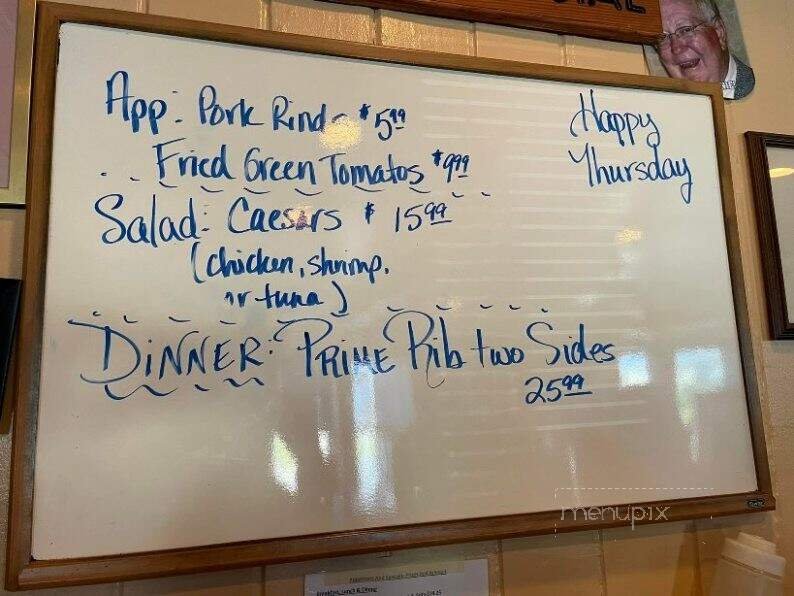 App: Pork Rinds $5.99
Fried Green Tomatos $9.99
Salad: Caesars $ 15.99
(chicken, shrimp,
or tuna)
DINNER: PRIME Rib two Sides
25.99
Happy
Thursday
menupix